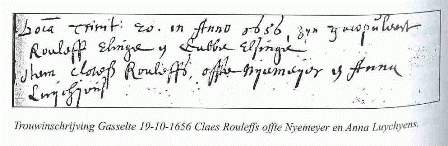 Trinit: 20. in Anno 1656, zyn gecopuleert
Rouleff Elinge y Lubbe Elsinge
Item Clowes Rouleffs, offte Nyemeyer y Anna
Luychyens
Trouwinschrijving Gasselte 19-10-1656 Claes Rouleffs offte Nyemeyer en Anna Luychyens.